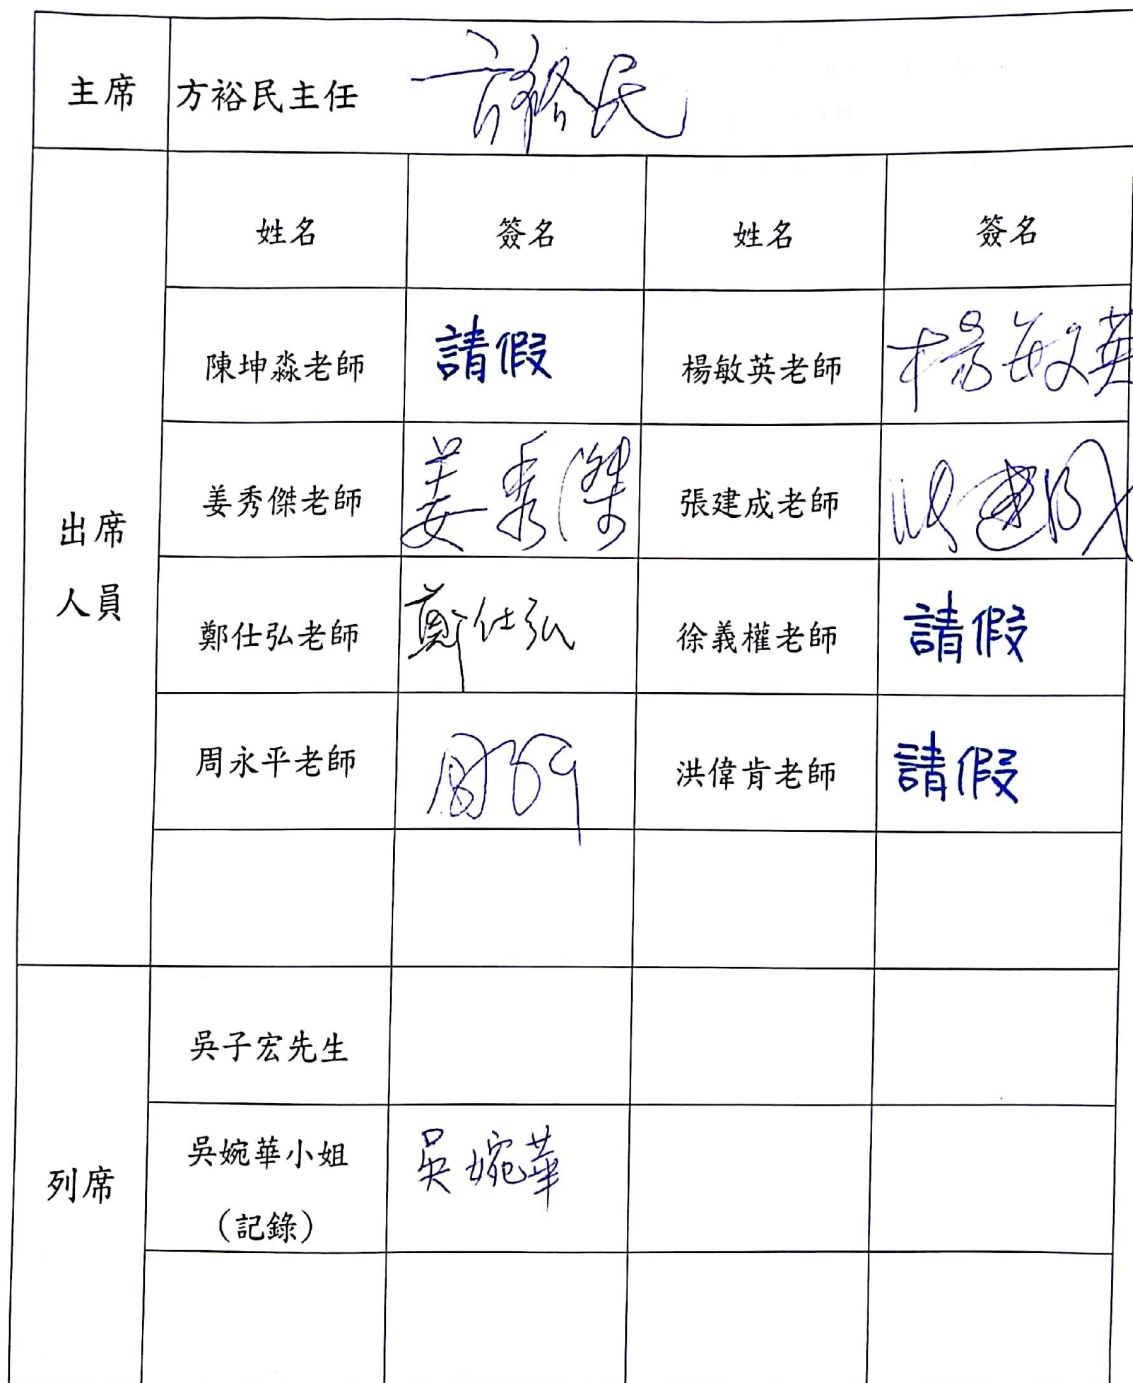 主席 方裕民主任 方裕民
出席人員 姓名 簽名 姓名 簽名
陳坤淼老師 請假 楊敏英老師 楊敏英
姜秀傑老師 姜秀傑 張建成老師 張建成
鄭仕弘老師 鄭仕弘 徐義權老師 請假
周永平老師 洪偉肯老師 請假
列席 吳子宏先生
吳婉華小姐 吳婉華
（記錄）